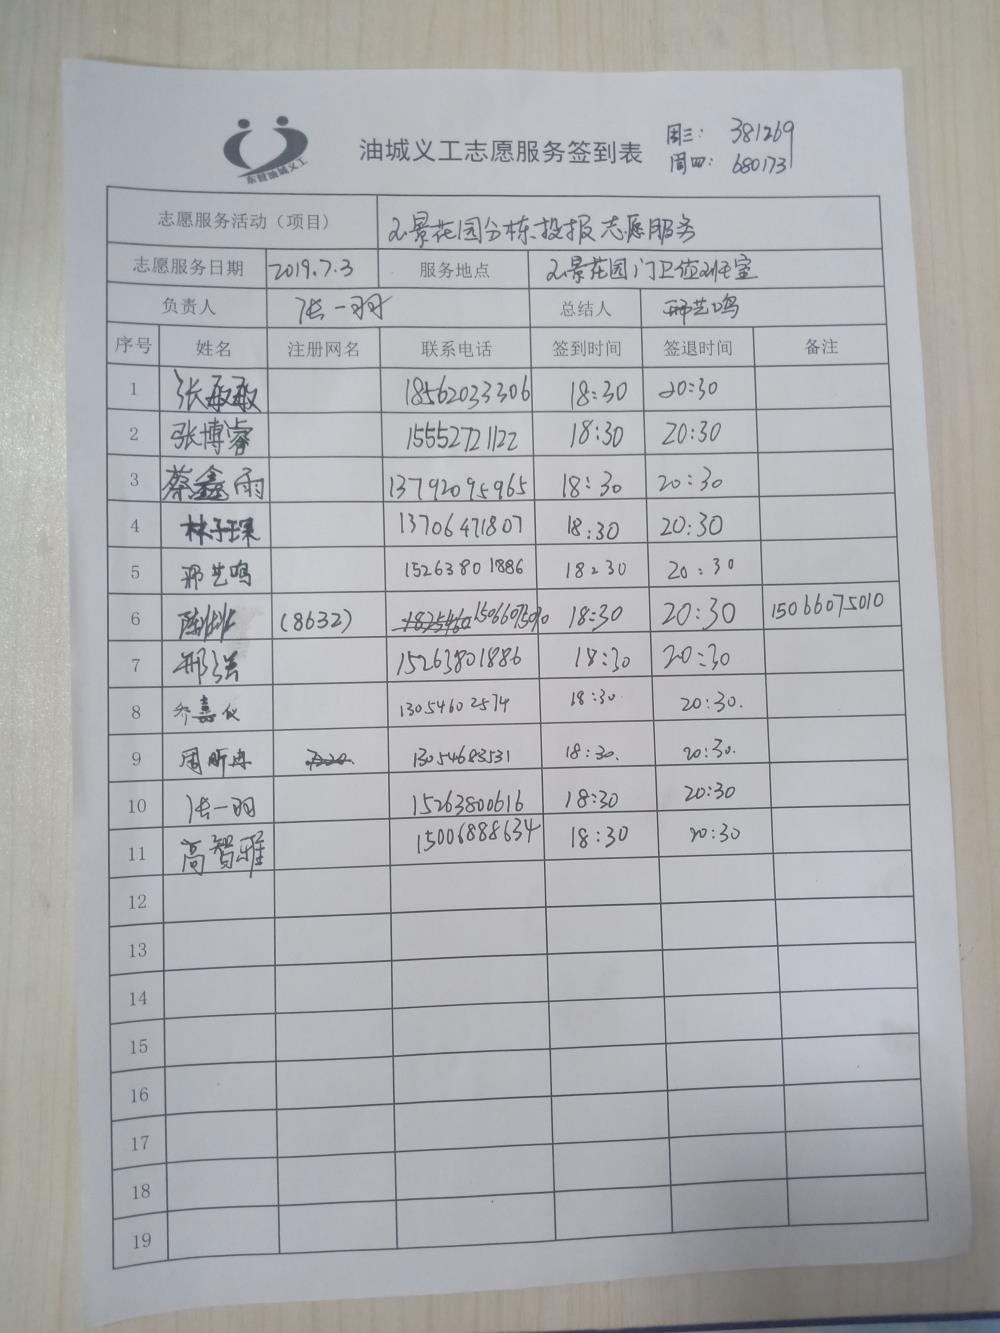 东营油城义工
油城义工志愿服务签到表
周三: 381269
周四: 680173
志愿服务活动（项目） 景花园分栋投报志愿服务
志愿服务日期 2019.7.3 服务地点 景花园门卫值班室
负责人 张一羽 总结人 邢艺鸣
序号 姓名 注册网名 联系电话 签到时间 签退时间 备注
1 张敏敏 18562033306 18:30 20:30
2 张博睿 15552721122 18:30 20:30
3 蔡鑫雨 13792095965 18:30 20:30
4 林子琛 13706471807 18:30 20:30
5 邢艺鸣 15263801886 18:30 20:30
6 (8632) 15066075010 18:30 20:30 15066075010
7 邢强 15263801886 18:30 20:30
8 乔嘉仪 13054602574 18:30. 20:30.
9 周昕冉 13054683531 18:30. 20:30.
10 张一羽 15263800616 18:30 20:30
11 高智雅 15006888634 18:30 20:30
12
13
14
15
16
17
18
19